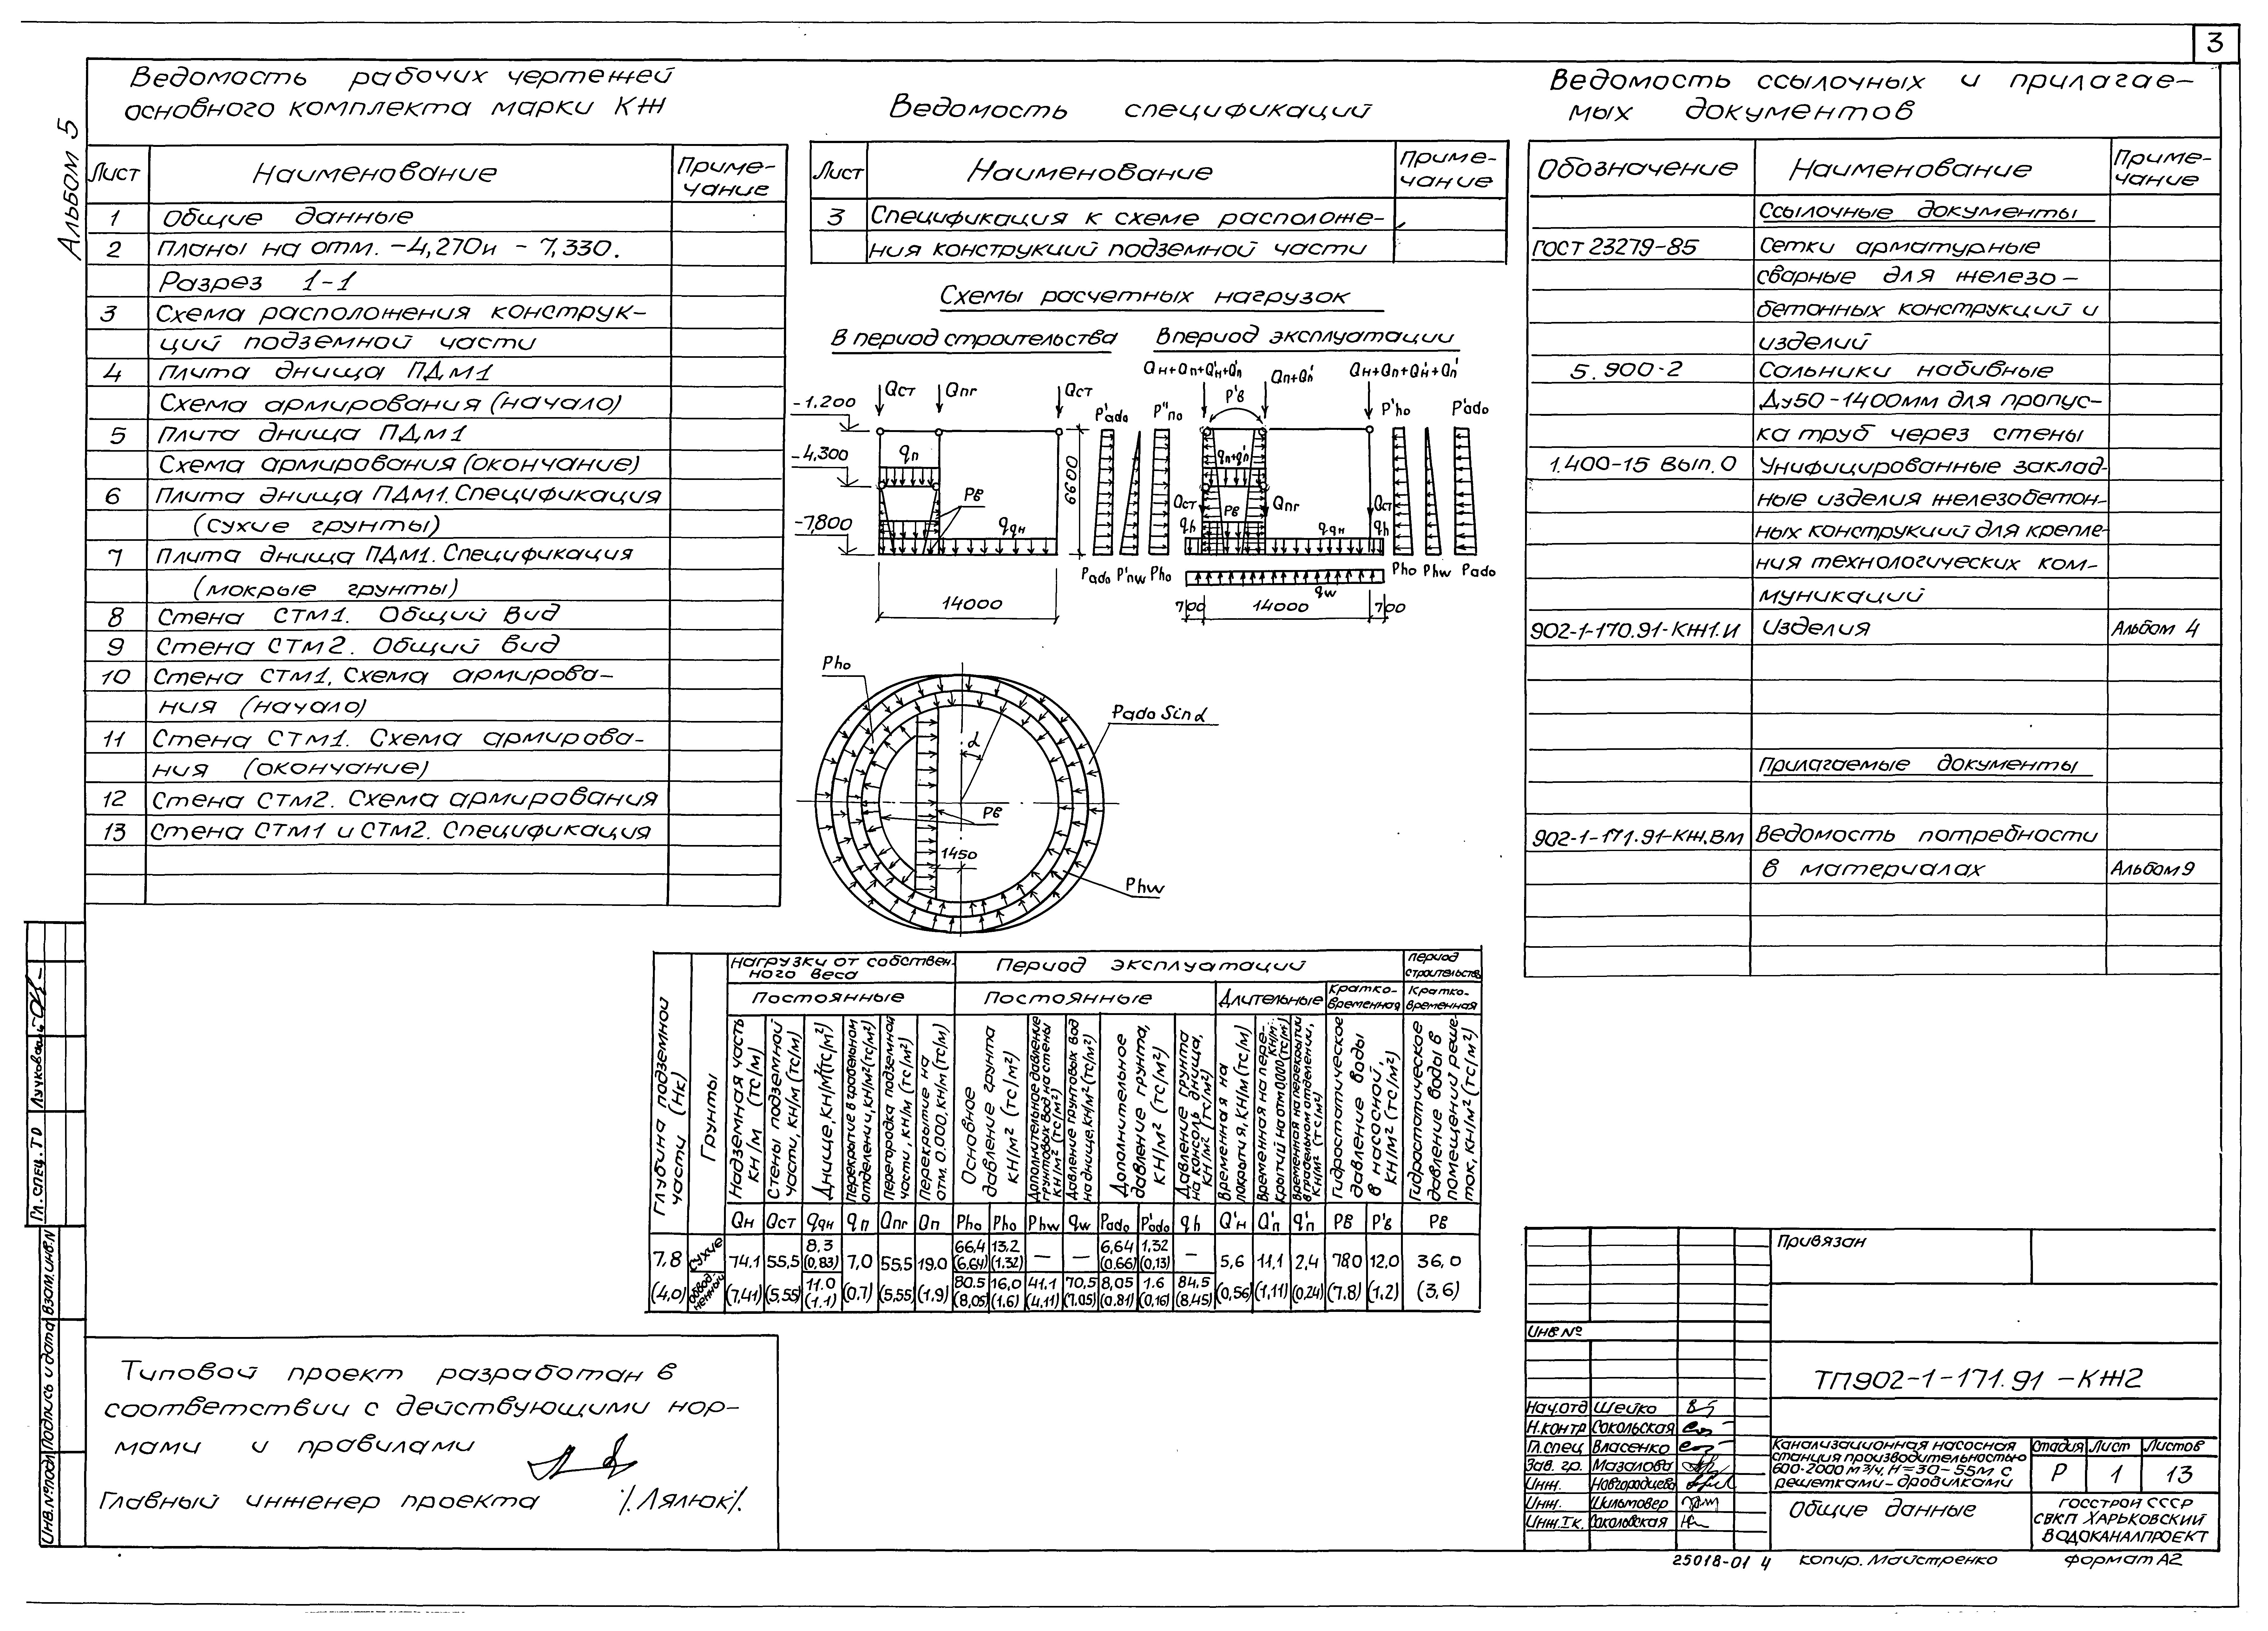 3
Альбом 5
Ведомость рабочих чертежей
основного комплекта марки КЖ
Лист Наименование Приме-
чание
1 Общие данные
2 Планы на отм. -4,270 и -7,330.
Разрез 1-1
3 Схема расположения конструк-
ций подземной части
4 Плита днища ПДм1
Схема армирования (начало)
5 Плита днища ПДм1
Схема армирования (окончание)
6 Плита днища ПДм1. Спецификация
(сухие грунты)
7 Плита днища ПДм1. Спецификация
(мокрые грунты)
8 Стена СТм1. Общий вид
9 Стена СТм2. Общий вид
10 Стена СТм1. Схема армирова-
ния (начало)
11 Стена СТм1. Схема армирова-
ния (окончание)
12 Стена СТм2. Схема армирования
13 Стена СТм1 и СТм2. Спецификация
Ведомость спецификаций
Лист Наименование Приме-
чание
3 Спецификация к схеме расположе-
ния конструкций подземной части
Схемы расчетных нагрузок
В период строительства
-1.200
-4,300
-7,800
Qст Qпг Qст
qп
Рв
qдн
6600
14000
В период эксплуатации
Qн+Qп+Q'н+Q'п Qп+Q'п Qн+Qп+Q'н+Q'п
P'ado P''по P'в P'ho P'ado
qп+q'п
Qст Рв Qпг Qст
qh qдн qh
Pado P'пw Pho Pho Phw Pado
qw
700 14000 700
Pho
Pado Sin α
α
Рв
1450
Phw
Глубина подземной части (Нк)
Грунты
Нагрузки от собствен-
ного веса
Период эксплуатации
Период строительств
Постоянные Постоянные Длительные Кратко-
временная Кратко-
временная
Надземная часть кН/м (тс/м)
Стены подземной части, кН/м (тс/м)
Днище, кН/м² (тс/м²)
Перекрытие в грабельном отделении, кН/м² (тс/м²)
Перегородка подземной части, кН/м (тс/м²)
Перекрытие на отм. 0.000, кН/м (тс/м)
Основное давление грунта кН/м² (тс/м²)
Дополнительное давление грунтовых вод на стены кН/м² (тс/м²)
Давление грунтовых вод на днище, кН/м² (тс/м²)
Дополнительное давление грунта, кН/м² (тс/м²)
Давление грунта на консоль днища, кН/м² (тс/м²)
Временная на покрытия, кН/м (тс/м)
Временная на пере-
крытий на отм 0.000 кН/м (тс/м)
Временная на перекрытии в грабельном отделении, кН/м² (тс/м²)
Гидростатическое давление воды в насосной, кН/м² (тс/м²)
Гидростатическое давление воды в помещений реше-
ток, кН/м² (тс/м²)
Qн Qст qдн qп Qпг Qп Pho Pho Phw qw Pado P'ado qh Q'н Q'п q'п Рв P'в Рв
7,8 сухие 74.1 55,5 8,3 7,0 55,5 19.0 66,4 13.2 — — 6,64 1,32 — 5,6 11,1 2,4 78.0 12,0 36,0
(0,83) (6.64) (1.32) (0.66) (0,13)
(4,0) обвод-
ненный (7,41) (5,55) 11.0 (0.7) (5,55) (1.9) 80.5 16,0 41.1 70,5 8,05 1.6 84,5 (0,56) (1,11) (0,24) (7.8) (1.2) (3,6)
(1.1) (8,05) (1.6) (4,11) (7.05) (0.81) (0,16) (8.45)
Ведомость ссылочных и прилагае-
мых документов
Обозначение Наименование Приме-
чание
Ссылочные документы
ГОСТ 23279-85 Сетки арматурные
сварные для железо-
бетонных конструкций и
изделий
5.900-2 Сальники набивные
Ду50-1400мм для пропус-
ка труб через стены
1.400-15 Вып.0 Унифицированные заклад-
ные изделия железобетон-
ных конструкций для крепле-
ния технологических ком-
муникаций
902-1-170.91-КЖ1.И Изделия Альбом 4
Прилагаемые документы
902-1-171.91-КЖ.ВМ Ведомость потребности
в материалах Альбом 9
Гл. спец. ТО
Инв.№подл Подпись и дата Взам.инв.N
Типовой проект разработан в
соответствии с действующими нор-
мами и правилами
Главный инженер проекта /.Лялюк/.
Привязан
Инв №
ТП902-1-171.91 -КЖ2
Нач.отд Шейко
Н.контр Сокольская
Гл.спец Власенко
Зав. гр. Мазалова
Инж. Новгородцева
Инж. Шильмовер
Инж.Iк. Соколовская
Канализационная насосная
станция производительностью
600-2000 м³/ч, Н=30-55м с
решетками-дробилками
Стадия Лист Листов
Р 1 13
Общие данные
ГОССТРОЙ СССР
СВКП ХАРЬКОВСКИЙ
ВОДОКАНАЛПРОЕКТ
25018-01 4 копир. Майстренко формат А2